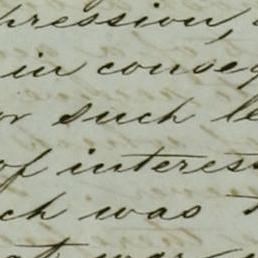 pression,
in conseq
or such le
of interes
ch was